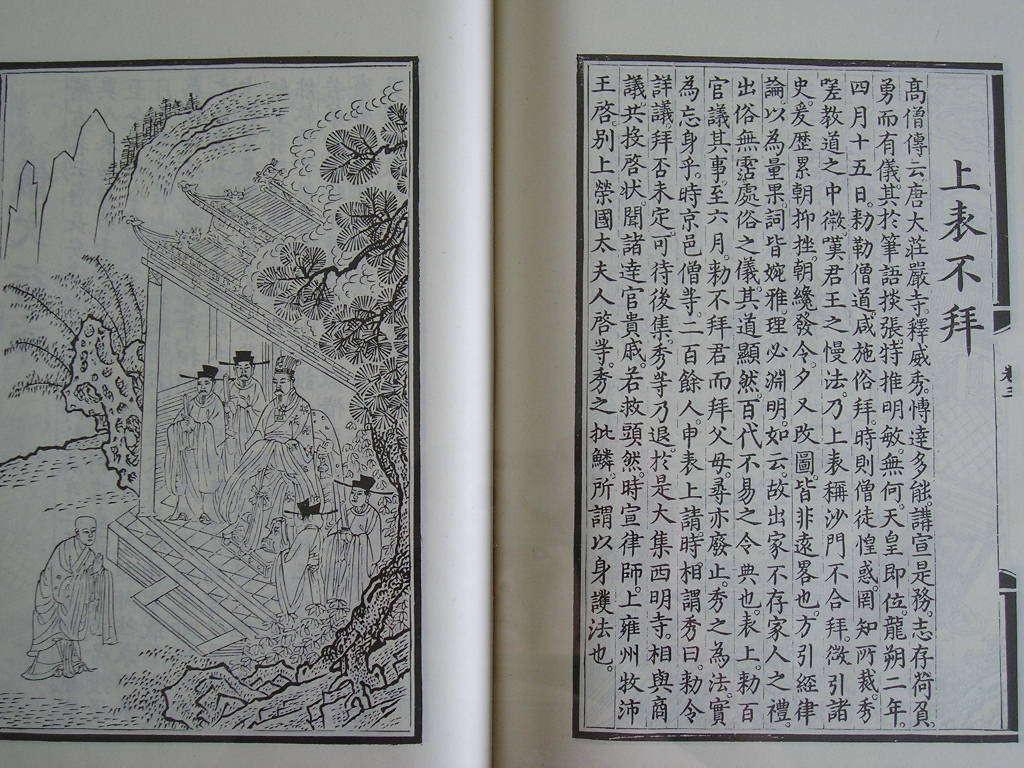 上表不拜
高僧傳云唐大莊嚴寺釋威秀愽達多能講宣是務志存荷負
勇而有儀其於筆語掞張特推明敏無何天皇即位龍朔二年
四月十五日勑勒僧道咸施俗拜時則僧徒惶惑罔知所裁秀
嗟教道之中微嘆君王之慢法乃上表稱沙門不合拜徵引諸
史爰歷累朝抑挫朝纔發令夕又改圖皆非遠畧也方引經律
論以為量果詞皆婉雅理必淵明如云故出家不存家人之禮
出俗無霑處俗之儀其道顯然百代不易之令典也表上勑百
官議其事至六月勑不拜君而拜父母尋亦廢止秀之為法實
為忘身乎時京邑僧等二百餘人申表上請時相謂秀曰勑令
詳議拜否未定可待後集秀等乃退於是大集西明寺相與商
議共投啓状聞諸達官貴戚若救頭然時宣律師上雍州牧沛
王啓別上榮國太夫人啓等秀之批鱗所謂以身護法也
卷三